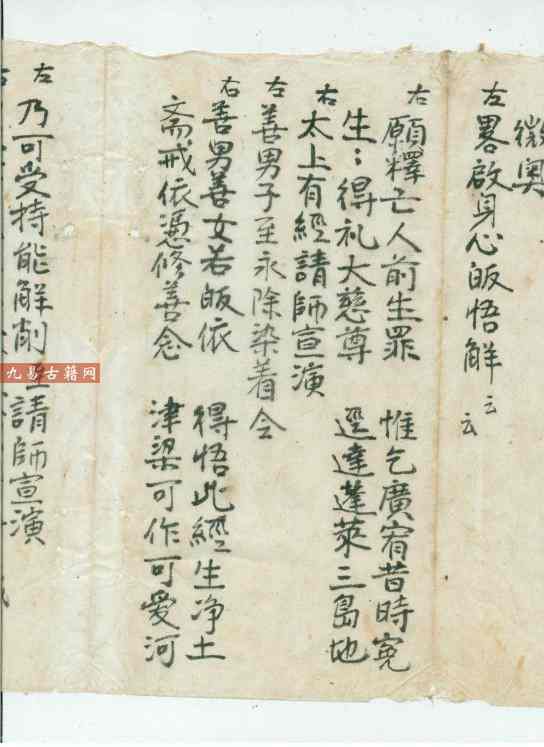 微奥
左 畧啟身心皈悟解云云
右 願釋亡人前生罪 惟乞廣宥昔時寃
生:得礼大慈尊 逕達蓬萊三島地
右 太上有經請師宣演
左 善男子至永除染着仝
右 善男善女若皈依 得悟此經生净土
斋戒依憑修善念 津梁可作可愛河
左 乃可受持能解削至請師宣演
右
九易古籍网